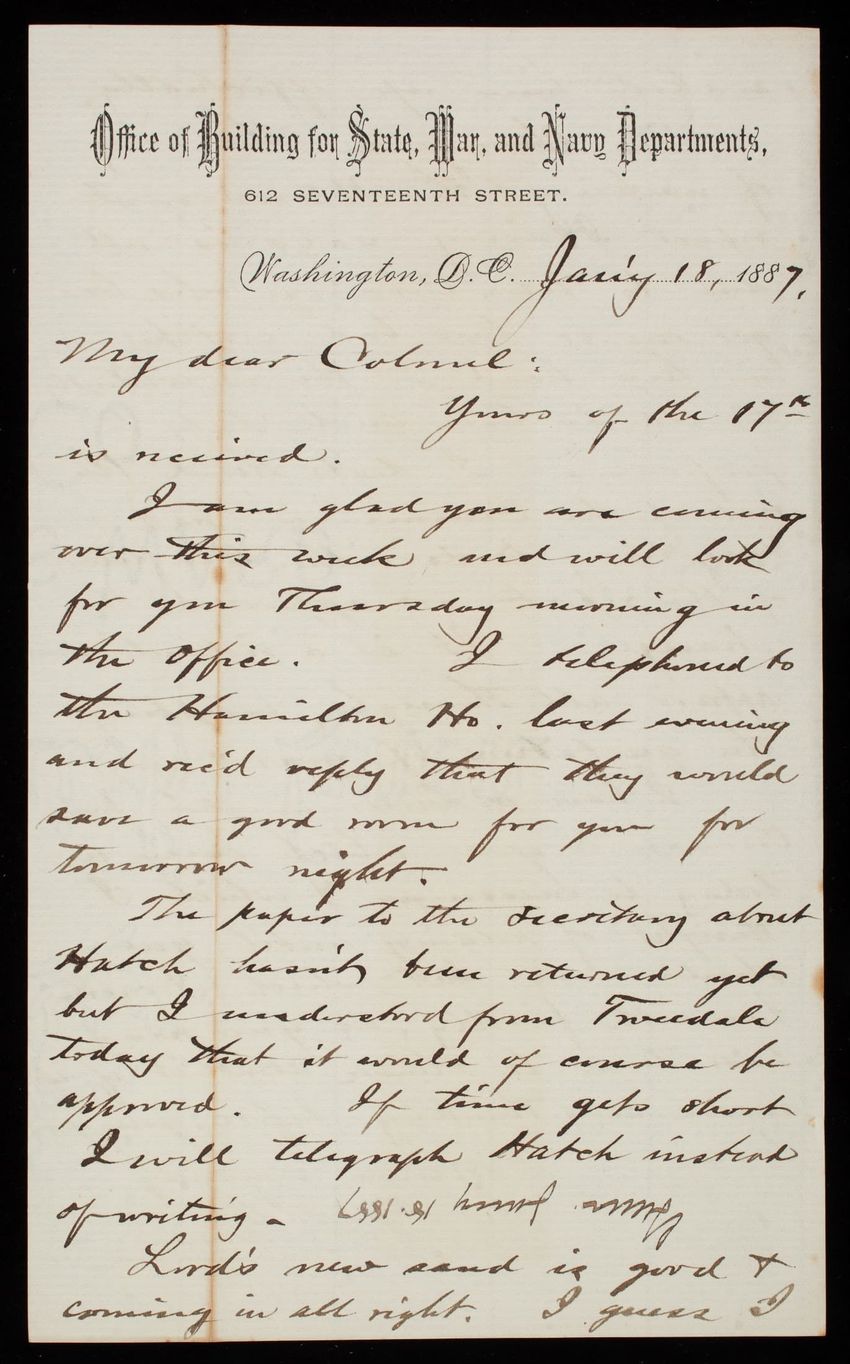 Office of Building for State, War, and Navy Departments,
612 SEVENTEENTH STREET.
Washington, D.C. Jan'y 18, 1887.
My dear Colonel:
Yours of the 17th
is received.
I am glad you are coming
over this week and will look
for you Thursday morning in
the office. I telephoned to
the Hamilton Ho. last evening
and rec'd reply that they would
save a good room for you for
tomorrow night.
The paper to the Secretary about
Hatch hasn't been returned yet
but I understood from Tweedale
today that it would of course be
approved. If time gets short
I will telegraph Hatch instead
of writing -
January 18. 1887
Lord's new sand is good &
coming in all right. I guess I